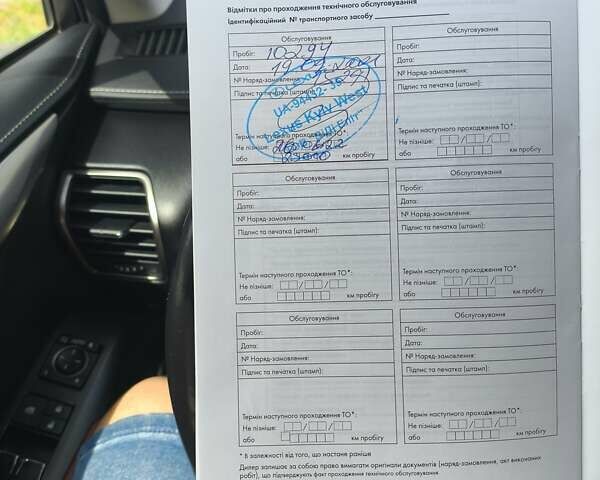 Відмітки про проходження технічного обслуговування
Ідентифікаційний № транспортного засобу
Обслуговування
Пробіг: 10294
Дата:
№ Наряд-замовлення:
Підпис та печатка (штамп):
UA-94432-
Lexus Kyiv West
Термін наступного проходження ТО*:
Не пізніше:
або
Обслуговування
Пробіг:
Дата:
№ Наряд-замовлення:
Підпис та печатка (штамп):
Термін наступного проходження ТО*:
Не пізніше: / /
або км пробігу
Обслуговування
Пробіг:
Дата:
№ Наряд-замовлення:
Підпис та печатка (штамп):
Термін наступного проходження ТО*:
Не пізніше: / /
або км пробігу
Обслуговування
Пробіг:
Дата:
№ Наряд-замовлення:
Підпис та печатка (штамп):
Термін наступного проходження ТО*:
Не пізніше: / /
або км пробігу
Обслуговування
Пробіг:
Дата:
№ Наряд-замовлення:
Підпис та печатка (штамп):
Термін наступного проходження ТО*:
Не пізніше: / /
або км пробігу
Обслуговування
Пробіг:
Дата:
№ Наряд-замовлення:
Підпис та печатка (штамп):
Термін наступного проходження ТО*:
Не пізніше: / /
або км пробігу
* В залежності від того, що настане раніше
Дилер залишає за собою право вимагати оригінали документів (наряд-замовлення, акт виконаних
робіт), що підтверджують факт проходження технічного обслуговування